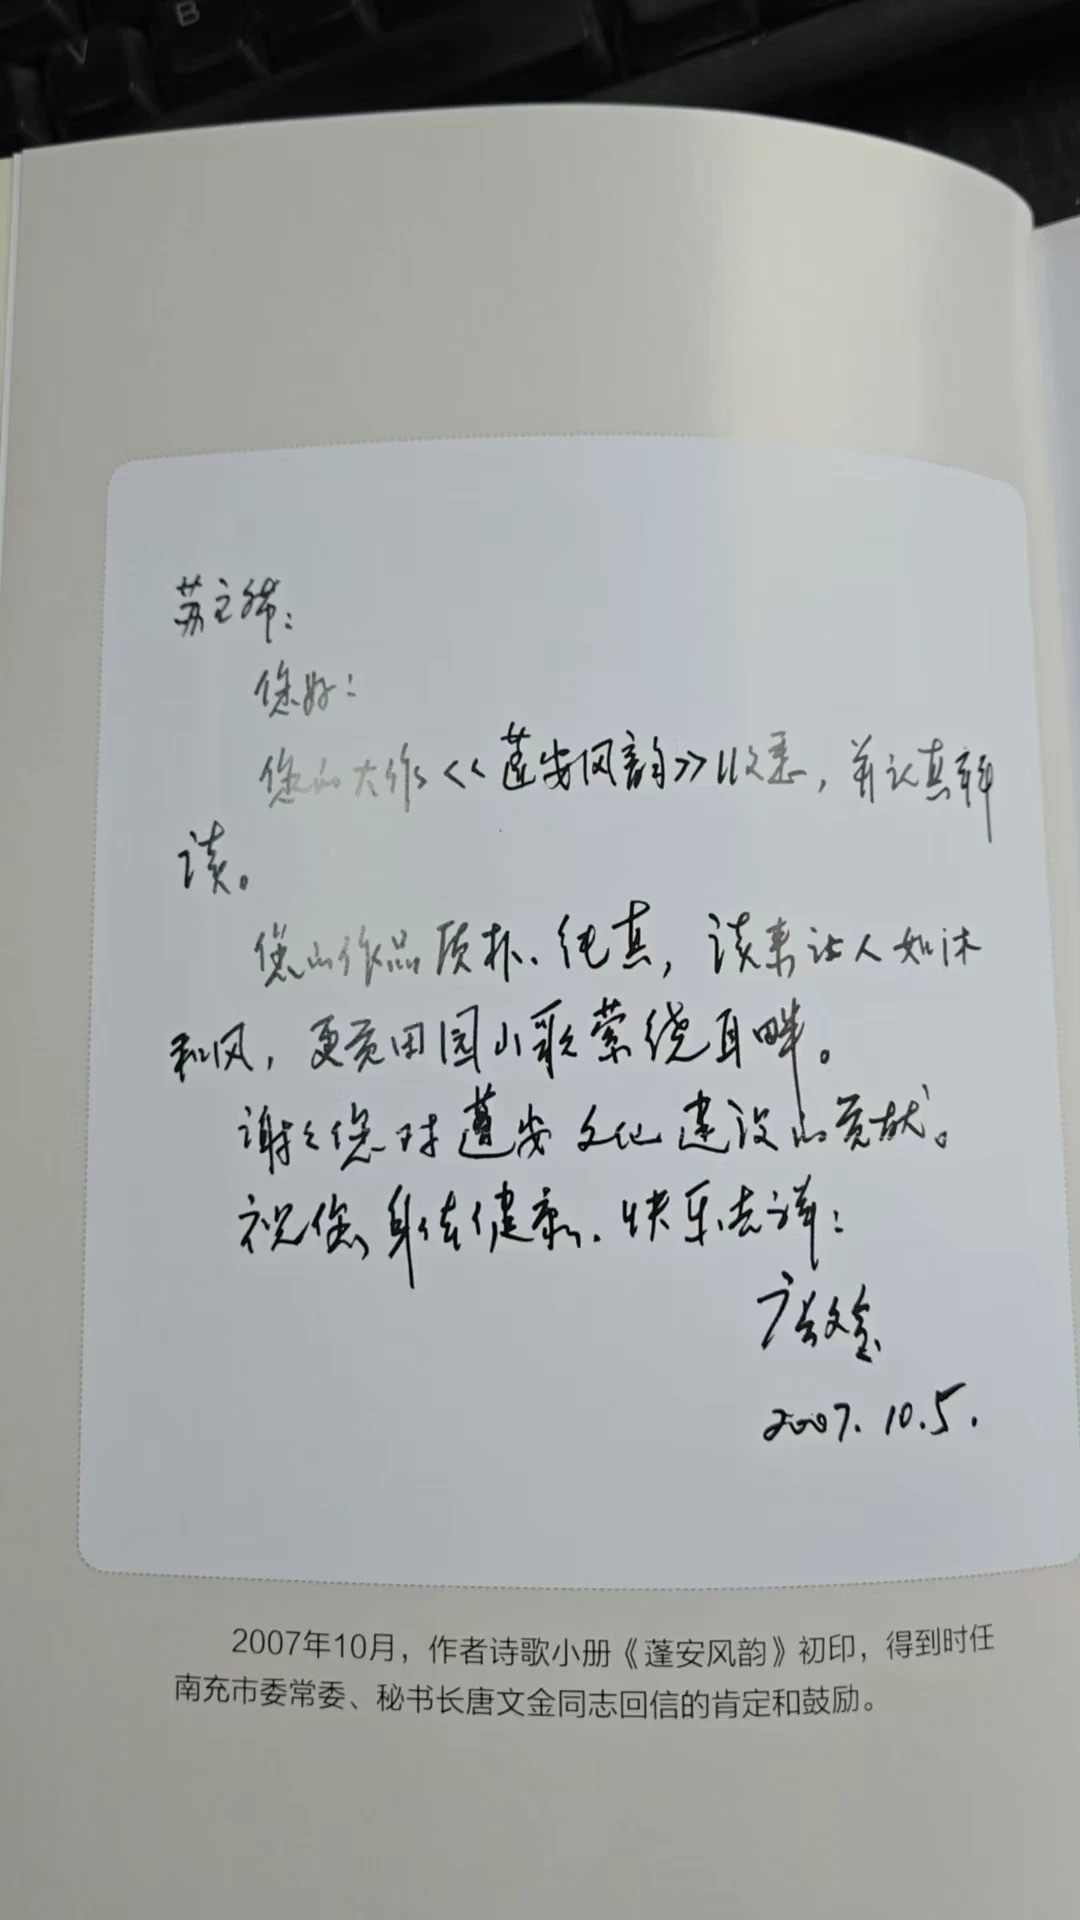 B
V
苏主席：
您好！
您的大作<<蓬安风韵>>收悉，并认真拜
读。
您的作品质朴、纯真，读来让人如沐
和风，更觉田园山歌萦绕耳畔。
谢谢您对蓬安文化建设的贡献。
祝您身体健康、快乐吉祥！
唐文金
2007.10.5.
2007年10月，作者诗歌小册《蓬安风韵》初印，得到时任
南充市委常委、秘书长唐文金同志回信的肯定和鼓励。